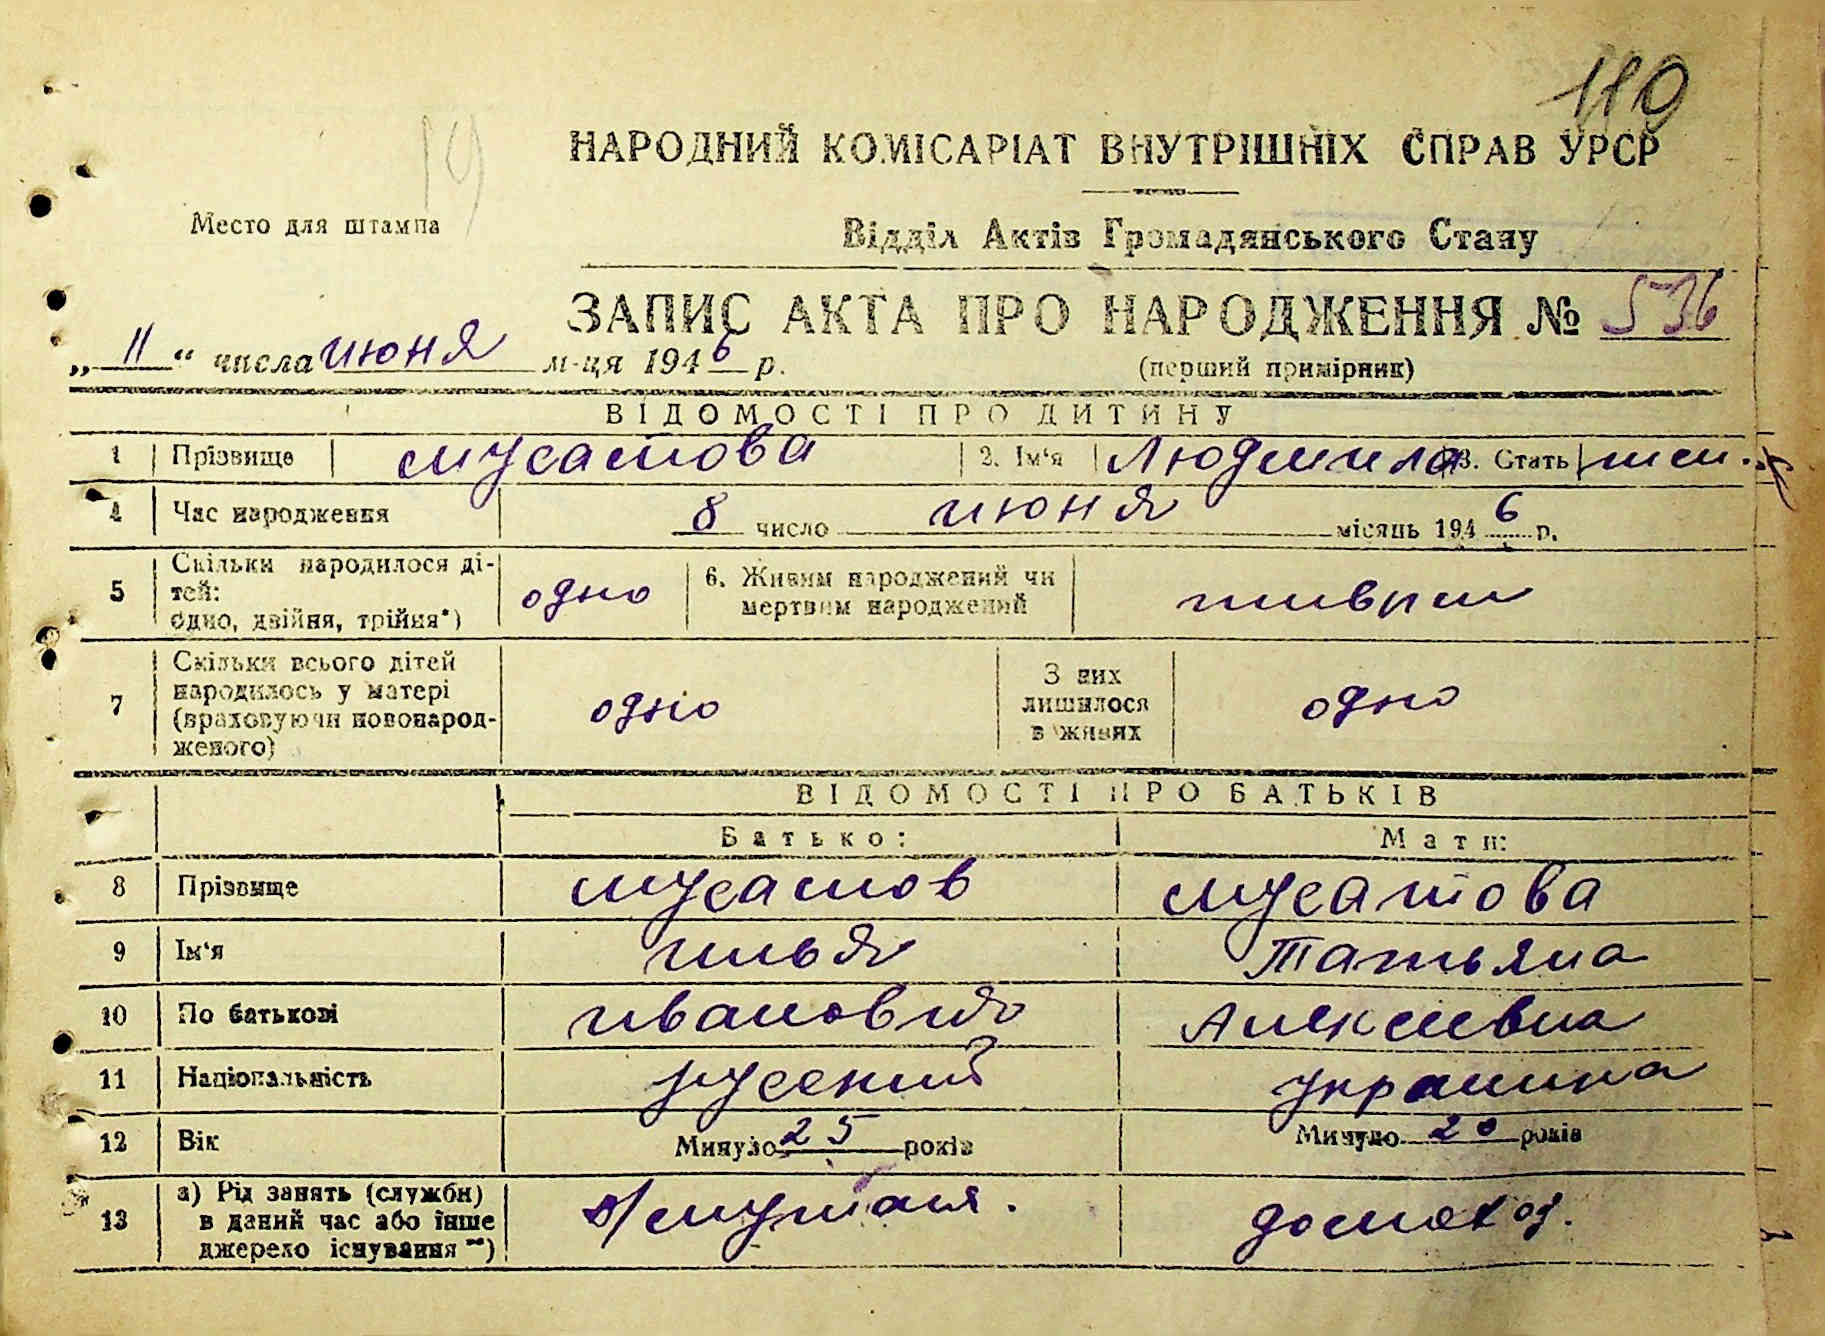 110
НАРОДНИЙ КОМІСАРІАТ ВНУТРІШНІХ СПРАВ УРСР
19
Место для штампа
Відділ Актів Громадянського Стану
ЗАПИС АКТА ПРО НАРОДЖЕННЯ № 536
„ 11 “ числа июня м-ця 1946 р.
(перший примірник)
ВІДОМОСТІ ПРО ДИТИНУ
1 Прізвище Мусатова 2. Ім'я Людмила 3. Стать жен.
4 Час народження 8 число июня місяць 1946 р.
5 Скільки народилося дітей: одно, двійня, трійня*) одно 6. Живим народжений чи мертвим народжений живым
7 Скільки всього дітей народилось у матері (враховуючи новонародженого) одно З них лишилося в живих одно
ВІДОМОСТІ ПРО БАТЬКІВ
Батько: Мати:
8 Прізвище Мусатов Мусатова
9 Ім'я Илья Татьяна
10 По батькові Иванович Алексеевна
11 Національність русский украинка
12 Вік Минуло 25 років Минуло 20 років
13 а) Рід занять (служби) в даний час або інше джерело існування **) домохоз.